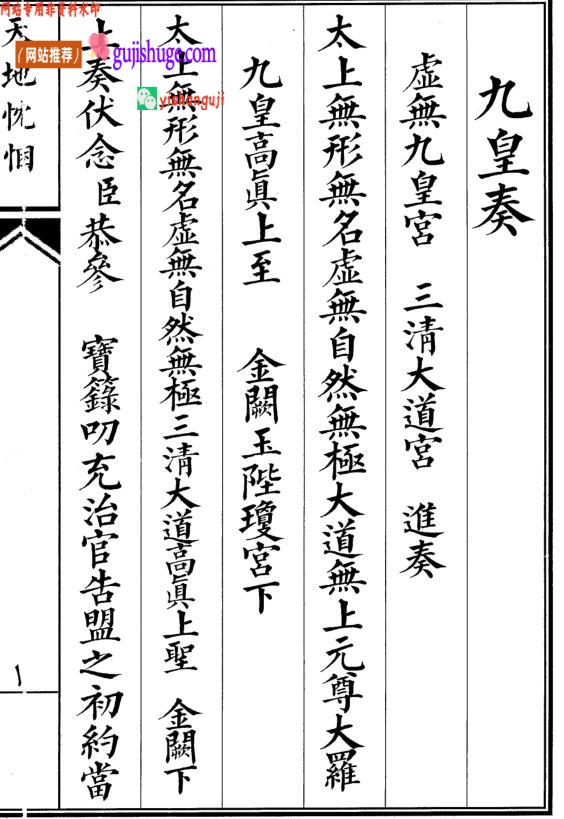 九皇奏
虛無九皇宮 三清大道宮 進奏
太上無形無名虛無自然無極大道無上元尊大羅
九皇高眞上至 金闕玉陛瓊宮下
太上無形無名虛無自然無極三清大道高眞上聖 金闕下
上奏伏念臣恭參 寶籙叨充治官告盟之初約當
天地忱悃
网站专用非资料水印
(网站推荐)
gujishuge.com
yishanguji